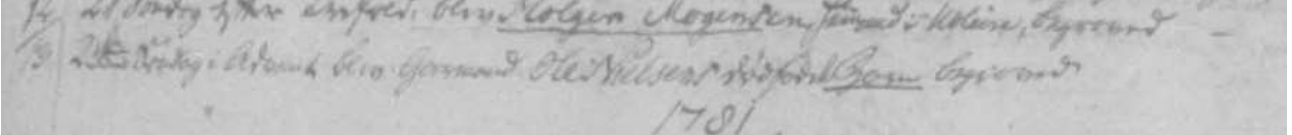 12/ 21 Søndag efter Trefold. blev Holger Mogensen, Huusmand i Kolere, begraved
13/ 2den Søndag i Advent blev Gaarmand Ole Nielsens dødfødt Barn begraved
1781